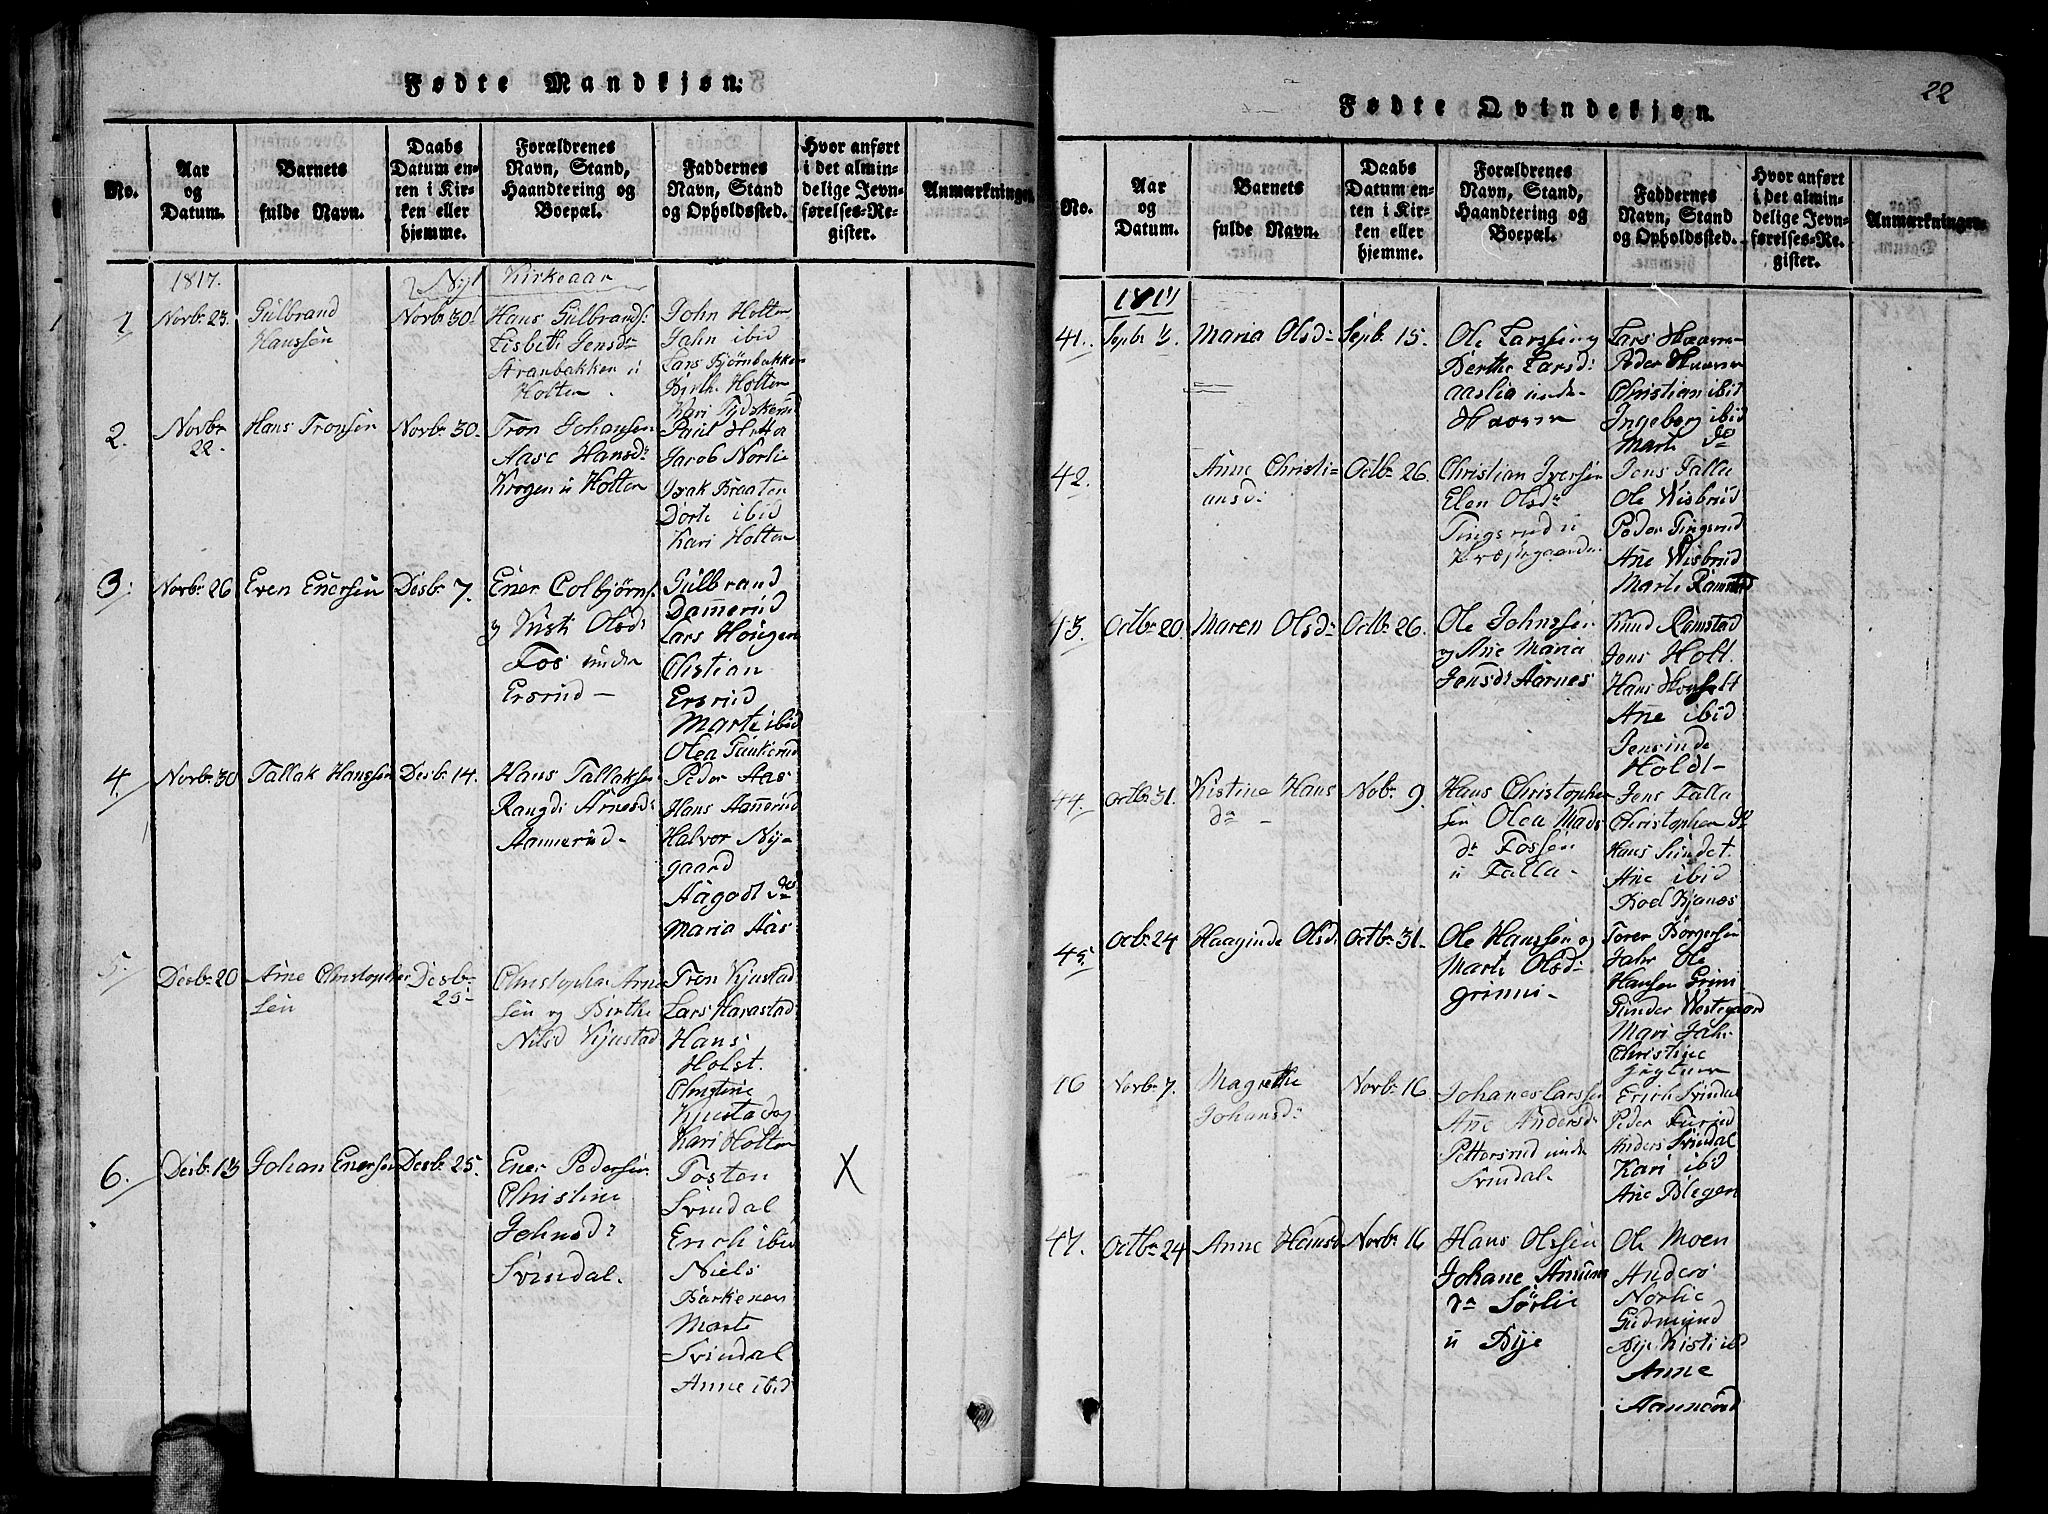 Fødte Mandkjøn:
No.
Aar og Datum.
Barnets fulde Navn.
Daabs Datum enten i Kirken eller hjemme.
Forældrenes Navn, Stand, Haandtering og Boepæl.
Faddernes Navn, Stand og Opholdssted.
Hvor anført i det almindelige Jevnførelses-Register.
Anmærkninger.
1817.
Nyt Kirkeaar
1
Novbr 23.
Gulbrand
Hanssen
Novbr 30
Hans Gulbrands:
Lisbeth Jensdr
Stranbakken u
Holten
John Holten
John ibid
Lars Bjørnbakken
Byrth. Holten
Kari Tydskerud
2.
Novbr
22.
Hans Tronsen
Novbr 30.
Tron Johansen
Aase Hansdr
Krogen u Holten
Paul Hotta
Jacob Norlie
Isak Braaten
Dorte ibid
Kari Holten
3.
Novbr 26
Even Enersen
Desbr 7.
Ener Colbjørns.
og Kisti Olsdr
Fos under
Ersrud
Gulbrand
Dammerud
Lars Hougen
Chistian
Ersrud
Marte ibid
Olea Taukerud
4.
Novbr 30
Tallak Hanssen
Desbr 14.
Hans Tallaksen
Rangdi Arnesdr
Aamerud
Peder Aas
Hans Aamerud
Halvor Ny-
gaard
Aagodt ds
Maria Aas
5.
Desbr 20
Arne Christopher
sen
Desbr
25
Christopher Arne
sen og Birthe
Nilsd Kjustad
Tron Kjustad
Lars Harastad
Hans
Holst.
Christine
Kjustad og
Kari Holten
6.
Desbr 13
Johan Enersen
Desbr 25.
Ener Pedersen
Christine
Johnsdr
Svindal.
Tosten
Svindal
Erich ibid
Niels
Barkenes
Marte
Svindal
Anne ibid
X
22
Fødte Qvindekjøn.
No.
Aar og Datum.
Barnets fulde Navn.
Daabs Datum enten i Kirken eller hjemme.
Forældrenes Navn, Stand, Haandtering og Boepæl.
Faddernes Navn, Stand og Opholdssted.
Hvor anført i det almindelige Jevnførelses-Register.
Anmærkninger.
1817
41.
Maria Olsdr
Sepbr 15.
Ole Larssen og
Berthe Larsd:
aaslia under
Haavrn
Lars Haavrn
Peder Haavrn
Christian ibid
Ingeborg ibid
Marte do
42.
Anne Christi=
ansdr
Octbr 26
Christian Iversen
Elen Olsdr
Tingsrud u
Præstegaarden
Jens Falla
Ole Wisbrud
Peder Tingsrud
Ane Wisbrud
Marte Ramstad
43.
Octbr 20.
Maren Olsdr
Octbr 26.
Ole Johnssen
og Ane Maria
Jensdr Aarnes
Knud Ramstad
Jens Holt.
Hans Hougelt
Ane ibid
Jensinde
Holdt
44.
Octbr 31.
Kistine Hans
dr
Nobr 9.
Hans Christopher
sen Olea Mads
dr Fossen
u Falla
Jens Falla
Christopher do
Hans Sundet.
Ane ibid
Boel Kjanes
45
Ocbr 24
Haaginde Olsdr
Octbr 31.
Ole Hanssen og
Marte Olsdr
grinni
Torer Borgersen
Jahr Ole
Hansen Grini
Gunder Westgaard
Mari Jahr
Christine
16
Novbr 7.
Magrethe
Johansdr
Novbr 16
Johanes Larssen
Ane Andersdr
Pettersrud unde
Svindal.
Erich Svindal
Peder Furrud
Anders Svindal
Kari ibid
Ane Blegen
47.
Octbr 24
Anne Hansd
Novbr 16
Hans Olssen
Johane Amun
dr Sørlie
u Bye
Ole Moen
Anders
Norlie
Gudmund
Bye Kisti ibid
Anne
Aamerud